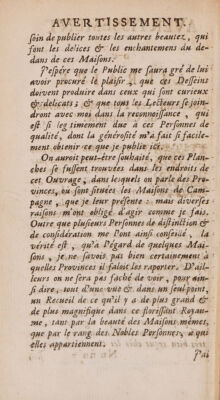 AVERTISSEMENT.
soin de publier toutes les autres beautez, qui
font les delices & les enchantemens du de-
dans de ces Maisons.
J'espére que le Public me saura gré de lui
avoir procuré le plaisir, que ces Desseins
doivent produire dans ceux qui sont curieux
& delicats; & que tous les Lecteurs se join-
dront avec moi dans la reconnoissance, qui
est si legitimement due à ces Personnes de
qualité, dont la générosité m'a fait si facile-
ment obtenir ce que je publie ici.
On auroit peut-être souhaité, que ces Plan-
ches se fussent trouvées dans les endroits de
cet Ouvrage, dans lesquels on parle des Pro-
vinces, où sont situées les Maisons de Cam-
pagne, que je leur présente: mais diverses
raisons m'ont obligé d'agir comme je fais.
Outre que plusieurs Personnes de distinction &
de considération me l'ont ainsi conseillé, la
vérité est, qu'à l'égard de quelques Mai-
sons, je ne savois pas bien certainement à
quelles Provinces il faloit les raporter. D'ail-
leurs on ne sera pas faché de voir, pour ain-
si dire, tout d'une vuë & dans un seul point,
un Recueil de ce qu'il y a de plus grand &
de plus magnifique dans ce florissant Royau-
me, tant par la beauté des Maisons mêmes,
que par le rang des Nobles Personnes, à qui
elles appartiennent.
J'ai